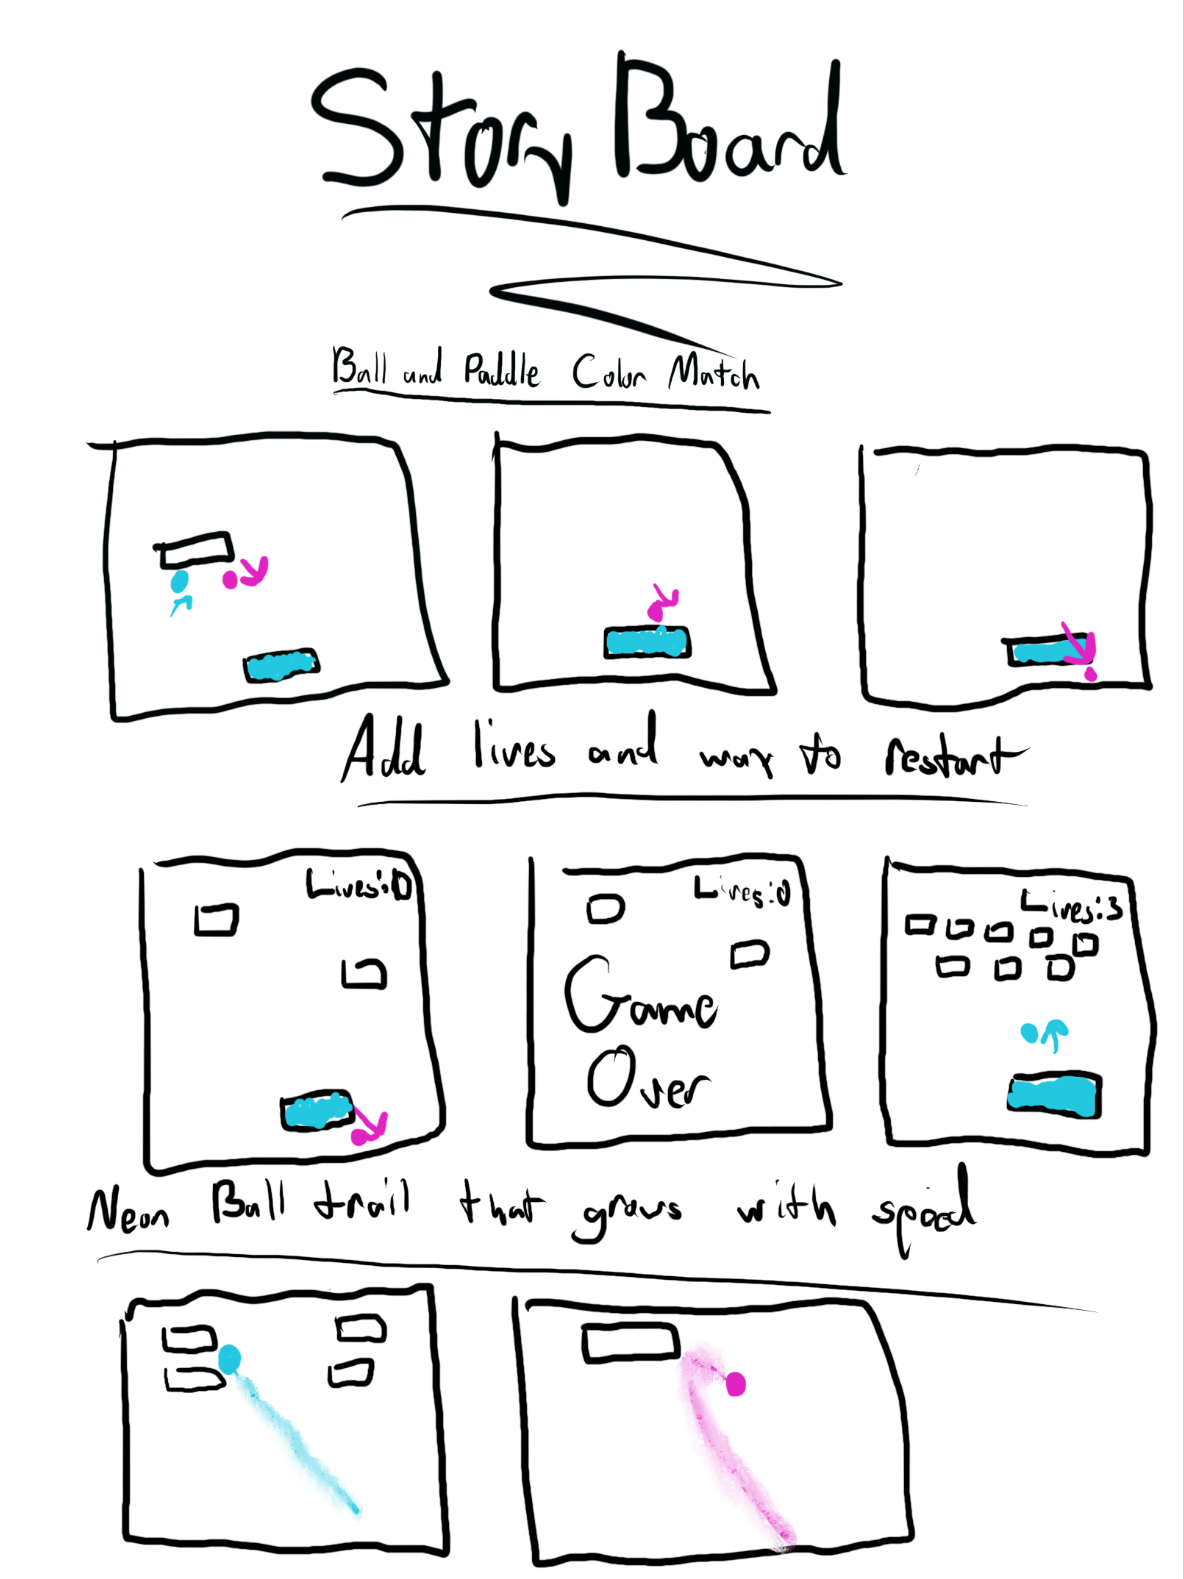 Story Board
Ball and Paddle Color Match
Add lives and way to restart
Lives:0
Lives:0
Lives:3
Game
Over
Neon Ball trail that grows with speed